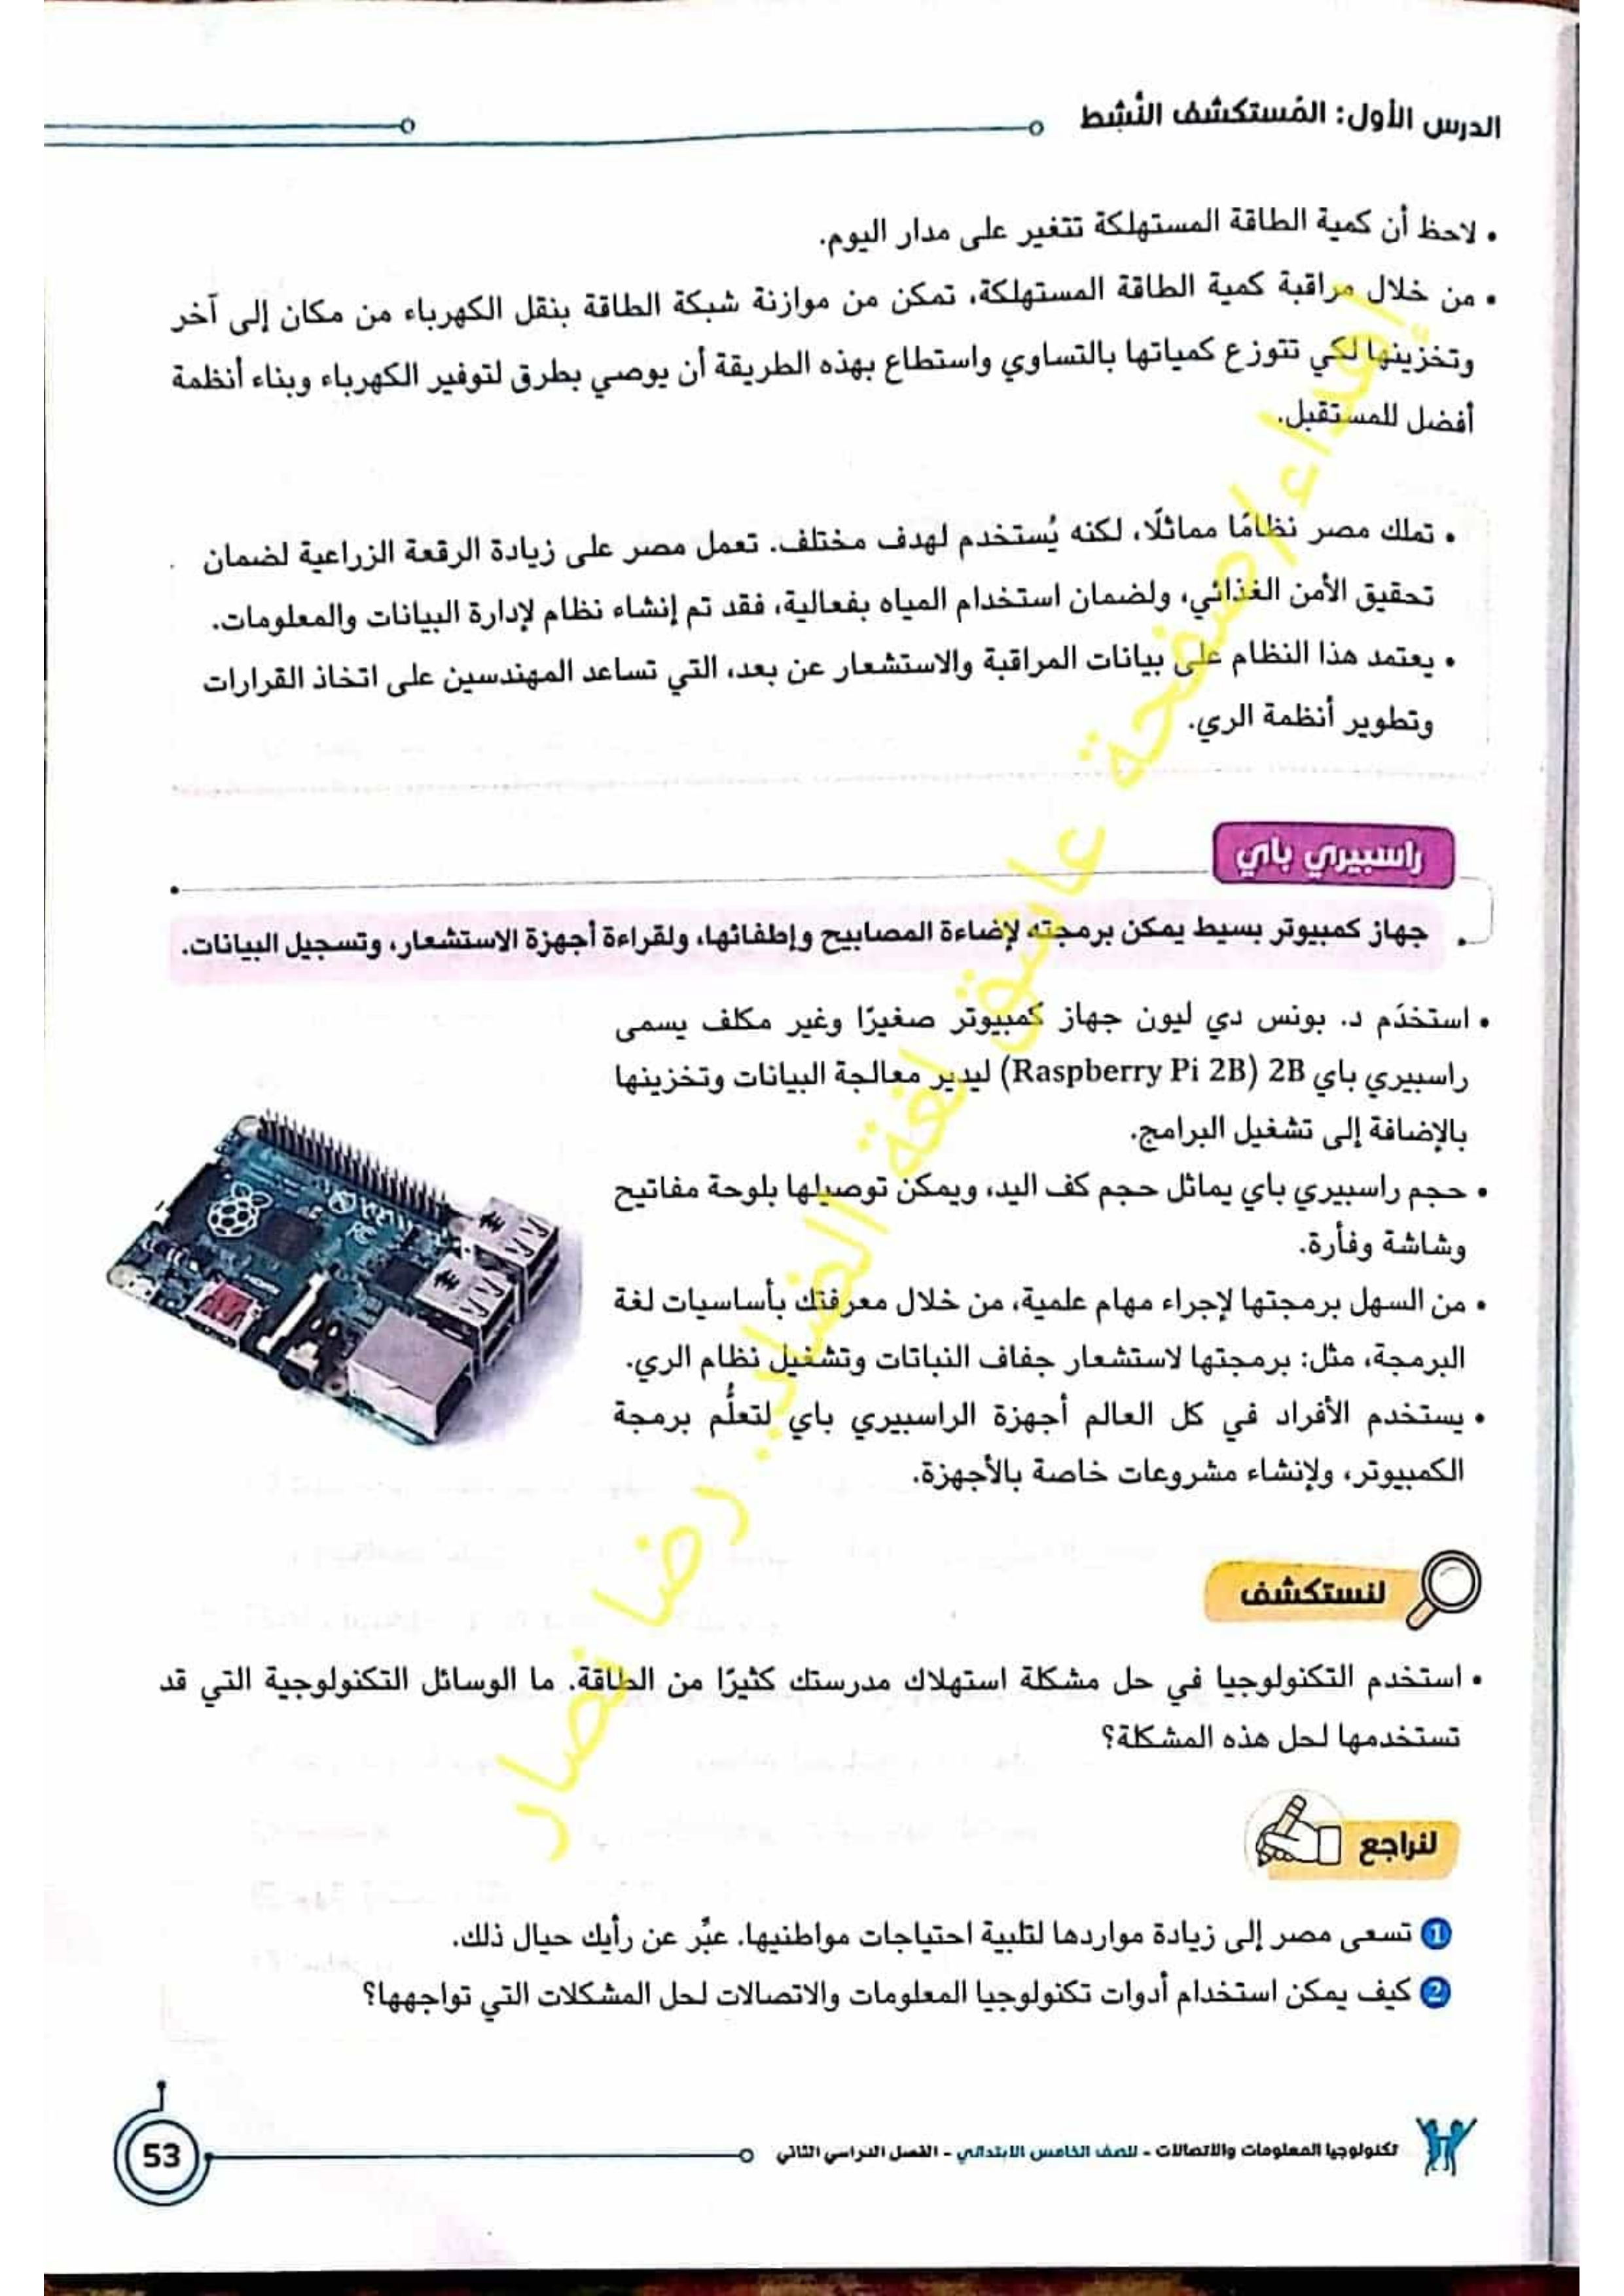 الدرس الأول: المُستكشف النَّشِط
• لاحظ أن كمية الطاقة المستهلكة تتغير على مدار اليوم.
• من خلال مراقبة كمية الطاقة المستهلكة، تمكن من موازنة شبكة الطاقة بنقل الكهرباء من مكان إلى آخر
وتخزينها لكي تتوزع كمياتها بالتساوي واستطاع بهذه الطريقة أن يوصي بطرق لتوفير الكهرباء وبناء أنظمة
أفضل للمستقبل.
• تملك مصر نظامًا مماثلًا، لكنه يُستخدم لهدف مختلف. تعمل مصر على زيادة الرقعة الزراعية لضمان
تحقيق الأمن الغذائي، ولضمان استخدام المياه بفعالية، فقد تم إنشاء نظام لإدارة البيانات والمعلومات.
• يعتمد هذا النظام على بيانات المراقبة والاستشعار عن بعد، التي تساعد المهندسين على اتخاذ القرارات
وتطوير أنظمة الري.
راسبيري باي
جهاز كمبيوتر بسيط يمكن برمجته لإضاءة المصابيح وإطفائها، ولقراءة أجهزة الاستشعار، وتسجيل البيانات.
• استخدَم د. بونس دي ليون جهاز كمبيوتر صغيرًا وغير مكلف يسمى
راسبيري باي 2B (Raspberry Pi 2B) ليدير معالجة البيانات وتخزينها
بالإضافة إلى تشغيل البرامج.
• حجم راسبيري باي يماثل حجم كف اليد، ويمكن توصيلها بلوحة مفاتيح
وشاشة وفأرة.
• من السهل برمجتها لإجراء مهام علمية، من خلال معرفتك بأساسيات لغة
البرمجة، مثل: برمجتها لاستشعار جفاف النباتات وتشغيل نظام الري.
• يستخدم الأفراد في كل العالم أجهزة الراسبيري باي لتعلُّم برمجة
الكمبيوتر، ولإنشاء مشروعات خاصة بالأجهزة.
لنستكشف
• استخدم التكنولوجيا في حل مشكلة استهلاك مدرستك كثيرًا من الطاقة. ما الوسائل التكنولوجية التي قد
تستخدمها لحل هذه المشكلة؟
لنراجع
1 تسعى مصر إلى زيادة مواردها لتلبية احتياجات مواطنيها. عبِّر عن رأيك حيال ذلك.
2 كيف يمكن استخدام أدوات تكنولوجيا المعلومات والاتصالات لحل المشكلات التي تواجهها؟
تكنولوجيا المعلومات والاتصالات - للصف الخامس الابتدائي - الفصل الدراسي الثاني
53
إهداء/صفحة عاشق لغة الضاد.. رضا نصار